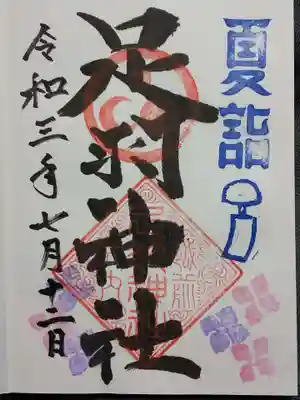 夏詣
足羽神社
令和三年七月十二日